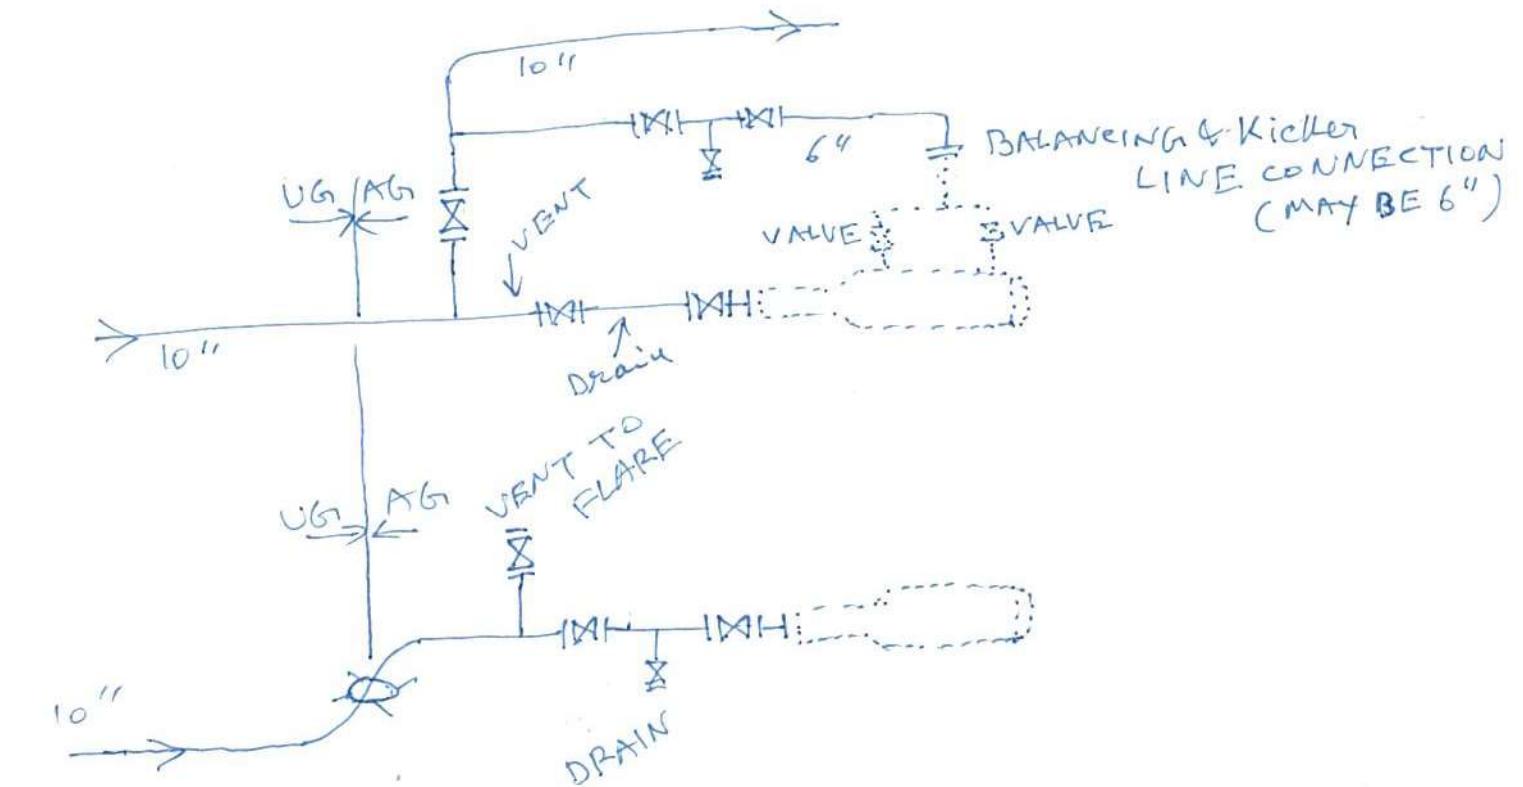 10"
6"
BALANCING & Kicker
LINE CONNECTION
(MAY BE 6")
UG AG
VENT
VALVE
VALVE
10"
Drain
VENT TO
FLARE
UG AG
10"
DRAIN